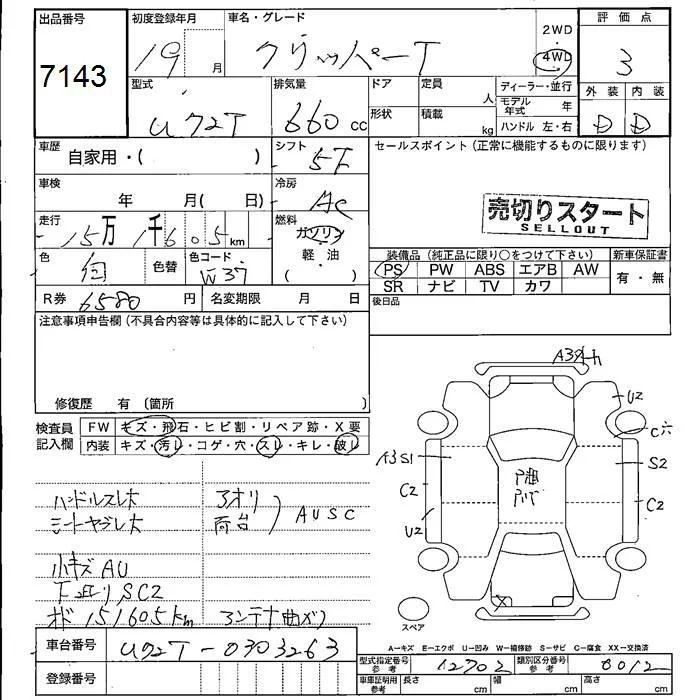 出品番号
7143
初度登録年月
19 月
車名・グレード
クリッパーT
2WD
・
4WD
評価点
3
外装 内装
D D
型式
U72T
排気量
660 cc
ドア
形状
定員
人
積載
kg
ディーラー・並行
モデル年式 年
ハンドル 左・右
車歴
自家用・( )
シフト
5F
セールスポイント(正常に機能するものに限ります)
車検
年 月( 日)
冷房
AC
売切りスタート
SELLOUT
走行
15万 1千605km
燃料
ガソリン
・
軽油
( )
色
白
色替
色コード
W37
装備品(純正品に限り○をつけて下さい)
新車保証書
PS PW ABS エアB AW
SR ナビ TV カワ
有・無
R券 6580 円
名変期限 月 日
後日品
注意事項申告欄(不具合内容等は具体的に記入して下さい)
修復歴 有 (箇所 )
検査員記入欄
FW キズ・飛石・ヒビ割・リペア跡・X要
内装 キズ・汚レ・コゲ・穴・スレ・キレ・破レ
ハンドルスレ大
シートヤブレ大
アオリ
荷台
AUSC
小キズAU
下廻りSC2
オド151605km
アンテナ曲ガリ
U2
C穴
S1
S2
C2
C2
U2
スペア
A-キズ E-エクボ U-凹み W-補修跡 S-サビ C-腐食 XX-交換済
車台番号 U72T-0303263
登録番号
型式指定番号 参考 12702
類別区分番号 参考 0012
車庫証明用 参考 長さ cm 幅 cm 高さ cm